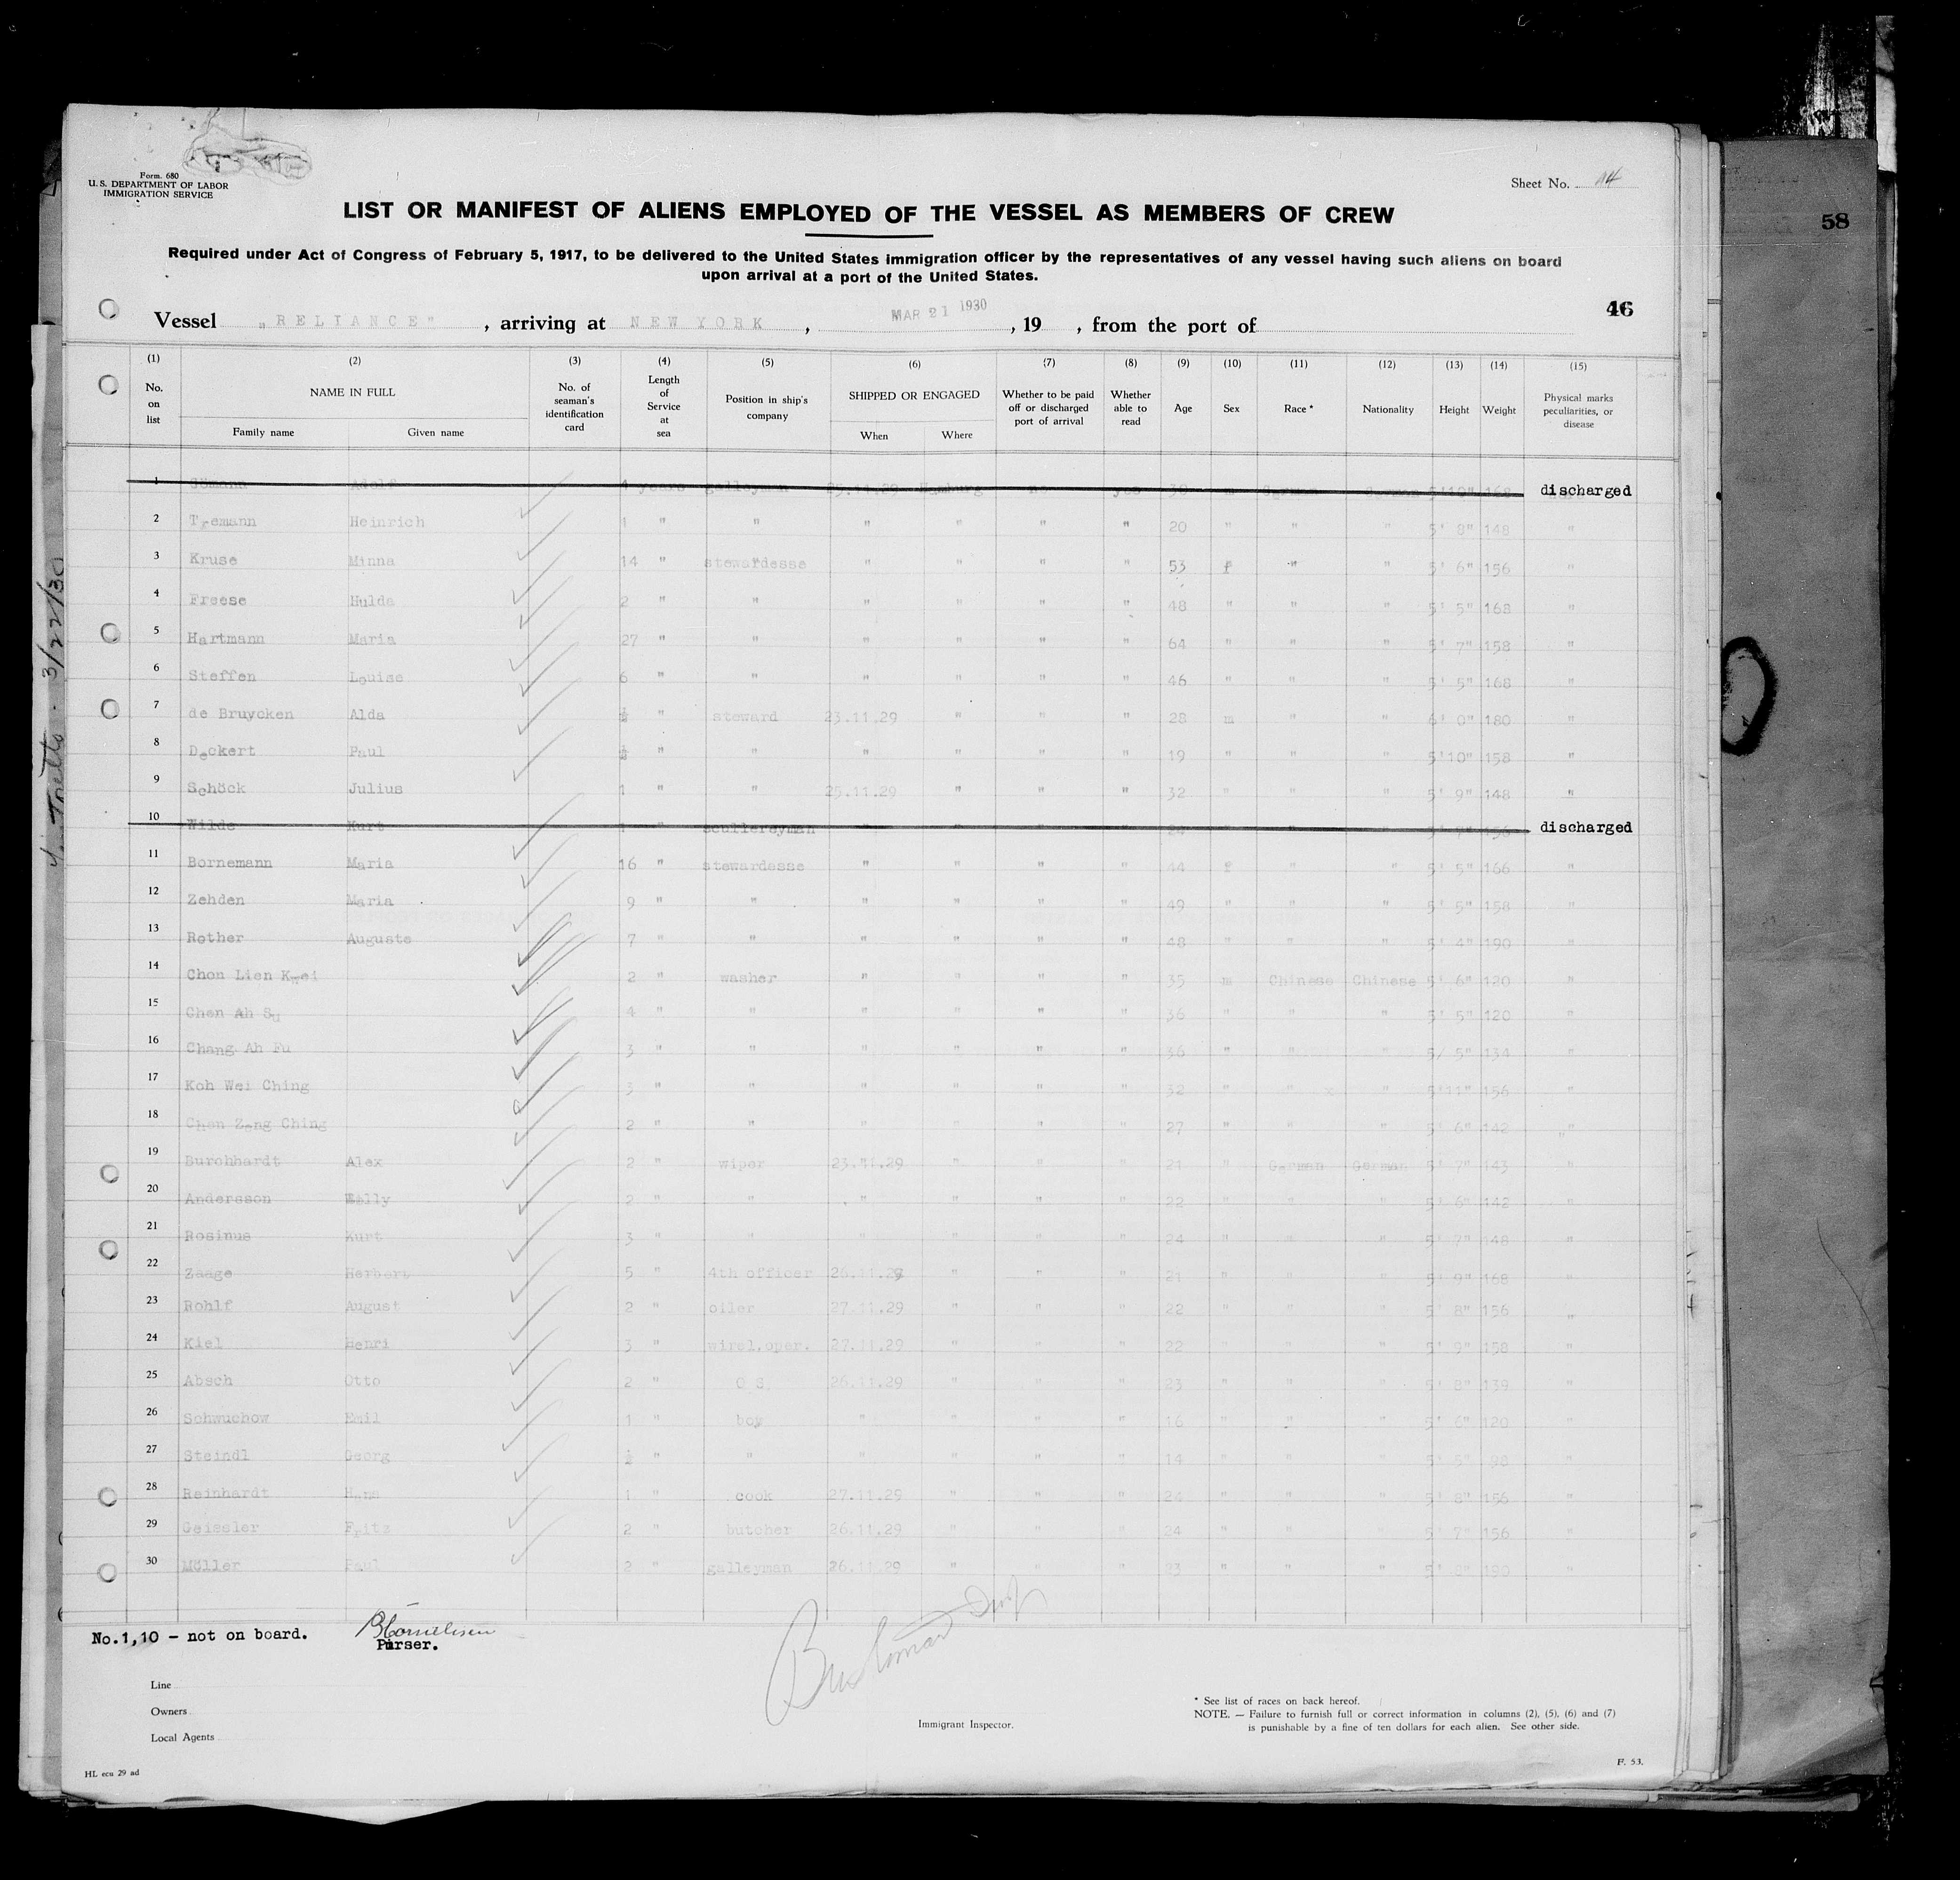 Form. 680
U. S. DEPARTMENT OF LABOR
IMMIGRATION SERVICE
Sheet No. 14
LIST OR MANIFEST OF ALIENS EMPLOYED OF THE VESSEL AS MEMBERS OF CREW
58
Required under Act of Congress of February 5, 1917, to be delivered to the United States immigration officer by the representatives of any vessel having such aliens on board
upon arrival at a port of the United States.
46
Vessel „RELIANCE" , arriving at NEW YORK , MAR 21 1930 , 19 , from the port of
(1) (2) (3) (4) (5) (6) (7) (8) (9) (10) (11) (12) (13) (14) (15)
No. on list NAME IN FULL Family name Given name No. of seaman's identification card Length of Service at sea Position in ship's company SHIPPED OR ENGAGED When Where Whether to be paid off or discharged port of arrival Whether able to read Age Sex Race * Nationality Height Weight Physical marks peculiarities, or disease
1 Adolf 4 years galleyman 25.11.29 Hamburg no yes 30 m German German 5'10" 168 discharged
2 Tremann Heinrich 1 " " " " " " 20 " " " 5' 8" 148 "
3 Kruse Minna 14 " stewardesse " " " " 53 f " " 5' 6" 156 "
4 Freese Hulda 2 " " " " " " 48 " " " 5' 5" 168 "
5 Hartmann Maria 27 " " " " " " 64 " " " 5' 7" 158 "
6 Steffen Louise 6 " " " " " " 46 " " " 5' 5" 168 "
7 de Bruycken Alda ½ " steward 23.11.29 " " " 28 m " " 6' 0" 180 "
8 Deckert Paul ½ " " " " " " 19 " " " 5'10" 158 "
9 Schöck Julius 1 " " 25.11.29 " " " 32 " " " 5' 9" 148 "
10 Wilde Kurt 1 " scullereyman " " " " 24 " " " 156 discharged
11 Bornemann Maria 16 " stewardesse " " " " 44 f " " 5' 5" 166 "
12 Zehden Maria 9 " " " " " " 49 " " " 5' 5" 158 "
13 Rother Auguste 7 " " " " " " 48 " " " 5' 4" 190 "
14 Chon Lien Kwei 2 " washer " " " " 35 m Chinese Chinese 5' 6" 120 "
15 Chen Ah Su 4 " " " " " " 36 " " " 5' 5" 120 "
16 Chang Ah Fu 3 " " " " " " 36 " " " 5/ 5" 134 "
17 Koh Wei Ching 3 " " " " " " 32 " " " 5'11" 156 "
18 Chen Zang Ching 2 " " " " " " 27 " " " 5' 6" 142 "
19 Burchhardt Alex 2 " wiper 23.11.29 " " " 21 " German German 5' 7" 143 "
20 Andersson 2 " " " " " " 22 " " " 5' 6" 142 "
21 Rosinus Kurt 3 " " " " " " 24 " " " 5' 7" 148 "
22 Zaage Herbert 5 " 4th officer 26.11.29 " " " 21 " " " 5' 9" 168 "
23 Rohlf August 2 " oiler 27.11.29 " " " 22 " " " 5' 8" 156 "
24 Kiel Henri 3 " wirel.oper. 27.11.29 " " " 22 " " " 5' 9" 158 "
25 Absch Otto 2 " O S. 26.11.29 " " " 23 " " " 5' 8" 139 "
26 Schwuchow Emil 1 " boy " " " " 16 " " " 5' 6" 120 "
27 Steindl Georg ½ " " " " " " 14 " " " 5' 5" 98 "
28 Reinhardt Hans 1 " cook 27.11.29 " " " 24 " " " 5' 8" 156 "
29 Geissler Fritz 2 " butcher 26.11.29 " " " 24 " " " 5' 7" 156 "
30 Möller Paul 2 " galleyman 26.11.29 " " " 23 " " " 5' 8" 180 "
No.1,10 - not on board.
Purser.
Line
Owners
Local Agents
Immigrant Inspector.
* See list of races on back hereof.
NOTE. — Failure to furnish full or correct information in columns (2), (5), (6) and (7)
is punishable by a fine of ten dollars for each alien. See other side.
HL ecu 29 ad
F. 53.
3/22/30